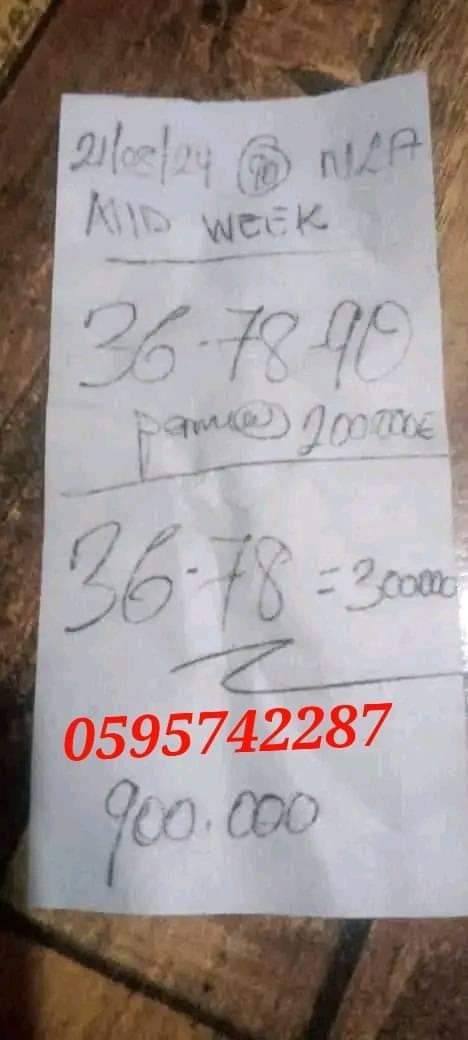 21/08/24 @ NLA
MID WEEK
36-78-90
perm(2) 200000
36-78 = 300000
0595742287
900.000